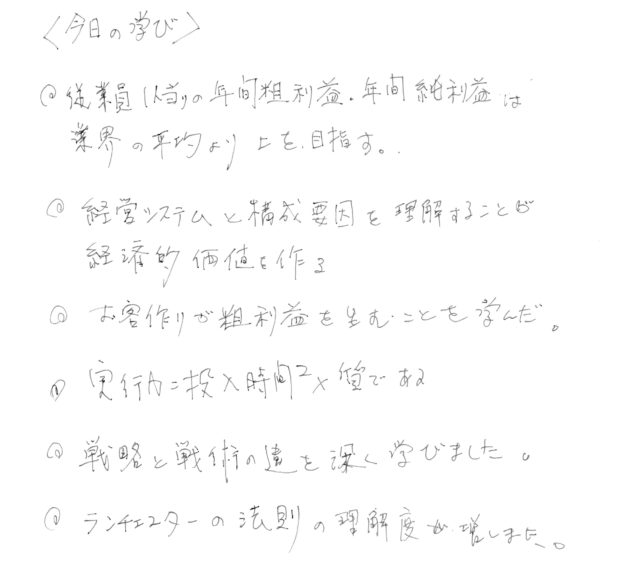 〈今日の学び〉
◎従業員1人当りの年間粗利益・年間純利益は
業界の平均より上を目指す。
◎経営システムと構成要因を理解することが
経済的価値を作る
◎お客作りが粗利益を生むことを学んだ。
◎実行力=投入時間²×質である
◎戦略と戦術の違を深く学びました。
◎ランチェスターの法則の理解度が増しました。